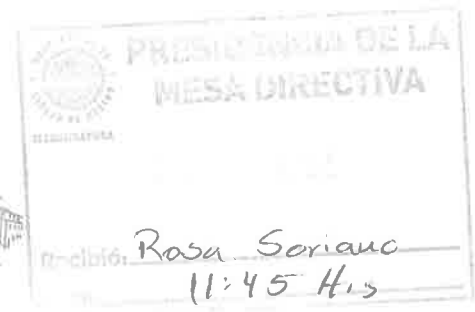 PRESIDENCIA DE LA
MESA DIRECTIVA
Recibió: Rosa Soriano
11:45 Hrs